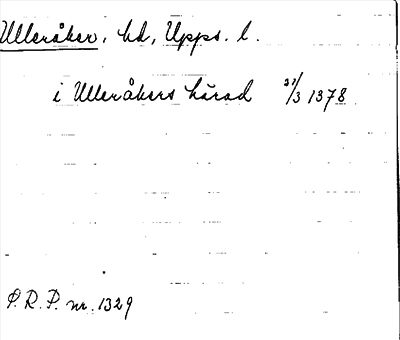 Ulleråker, hd, Upps. l.
i Ulleråkers härad 31/3 1378
P.R.P. nr. 1329